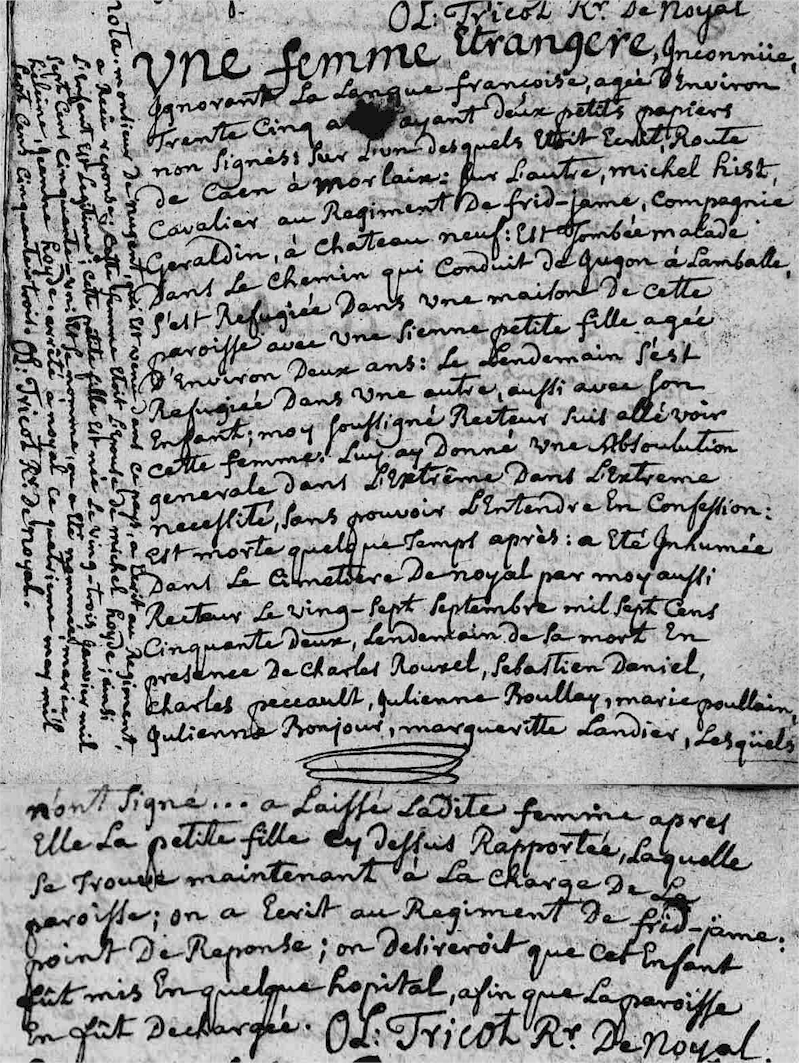 OL: Tricot Rr. De Noyal
Une femme Etrangere, Inconnüe,
Ignorant La Langue françoise, agée D'Environ
Trente Cinq a ayant deux petits papiers
non Signés: Sur L'un desquels Etoit Ecrit, Route
de Caen à morlaix: Sur L'autre, michel hist,
Cavalier au Regiment De frid-jame, Compagnie
Geraldin, à Chateau neuf: Est Tombée malade
Dans Le Chemin qui Conduit de Jugon à Lamballe,
S'est Refugiée Dans une maison De Cette
paroisse avec une Sienne petite fille agée
D'Environ Deux ans: Le Lendemain S'est
Refugiée Dans une autre, aussi avec Son
Enfant; moy Soussigné Recteur Suis allé voir
Cette femme: Luy ay Donné une Absoulution
generale dans L'Extrême Dans L'Extreme
necessité, Sans pouvoir L'Entendre En Confession:
est morte quelque Temps après: a Eté Inhumée
Dans Le Cimetiere De noyal par moy aussi
Recteur Le ving-Sept Septembre mil Sept Cens
Cinquante Deux, Lendemain de Sa mort En
presence De Charles Rouxel, Sebastien Daniel,
Charles peccault, Julienne Boullay, marie poullain,
Julienne Bonjour, margueritte Landier, Lesqüels
n'ont Signé... a Laissé Ladite femme apres
Elle La petite fille Cy dessus Rapportée, Laquelle
Se Trouve maintenant à La Charge De La
paroisse; on a Ecrit au Regiment De frid-jame:
point De Reponse; on desireroit que Cet Enfant
fût mis En quelque hopital, afin que La paroisse
En fût Dechargée. OL: Tricot Rr. De Noyal
nota. monsieur De nugent qui Est venu dans ce pays, a Ecrit au Regiment,
a Reçu reponse; Cette femme Etoit L'Epouse de michel hoyde; ainsi
L'Enfant Est Legitime; cette petite fille Est née Le ving-trois Janvier mil
Sept Cens Cinquante-un; Et Se nomme, ou a Eté nommée, marie,
helaine, Jeanne hoyde. arrêté a noyal ce quatrieme may mil
Sept Cens Cinquante trois. OL: Tricot Rr. De noyal.